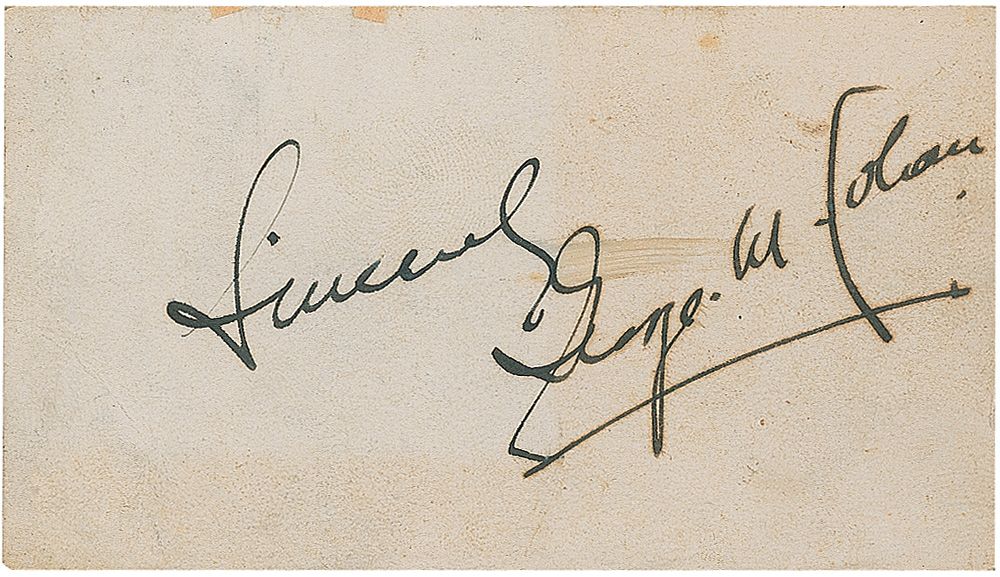 Sincerely
George. M. Cohan